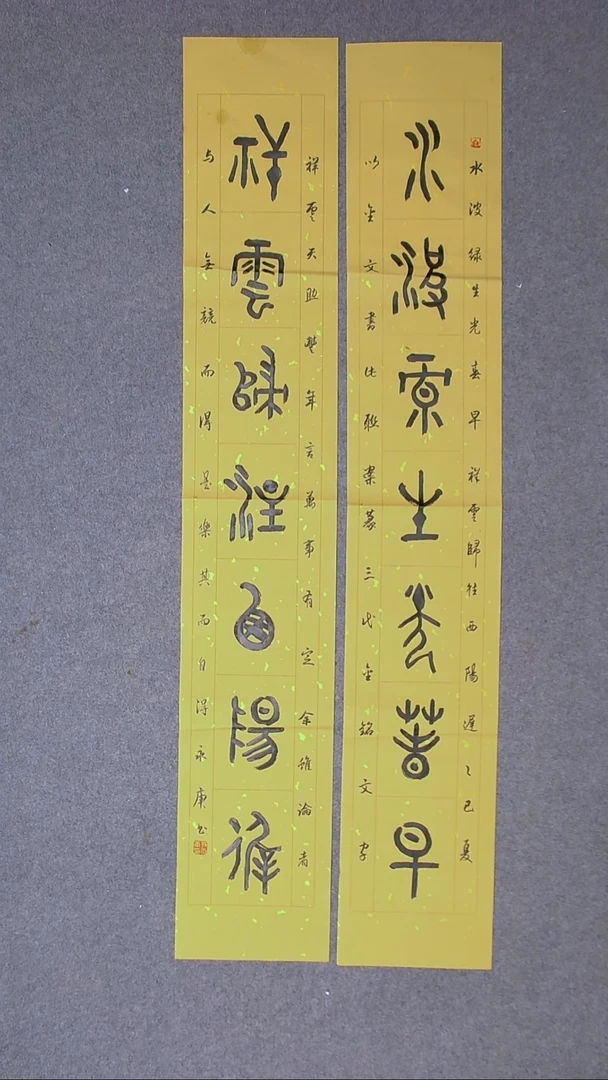 水波綠生光春早
水波绿生光春早祥雲歸往西陽遲乙巳夏
以金文書此联案篆三代金銘文字
祥雲歸往西陽遲
祥雲天助豐年言万事有定余雖論者
与人無競而得是樂其而自得永庚书